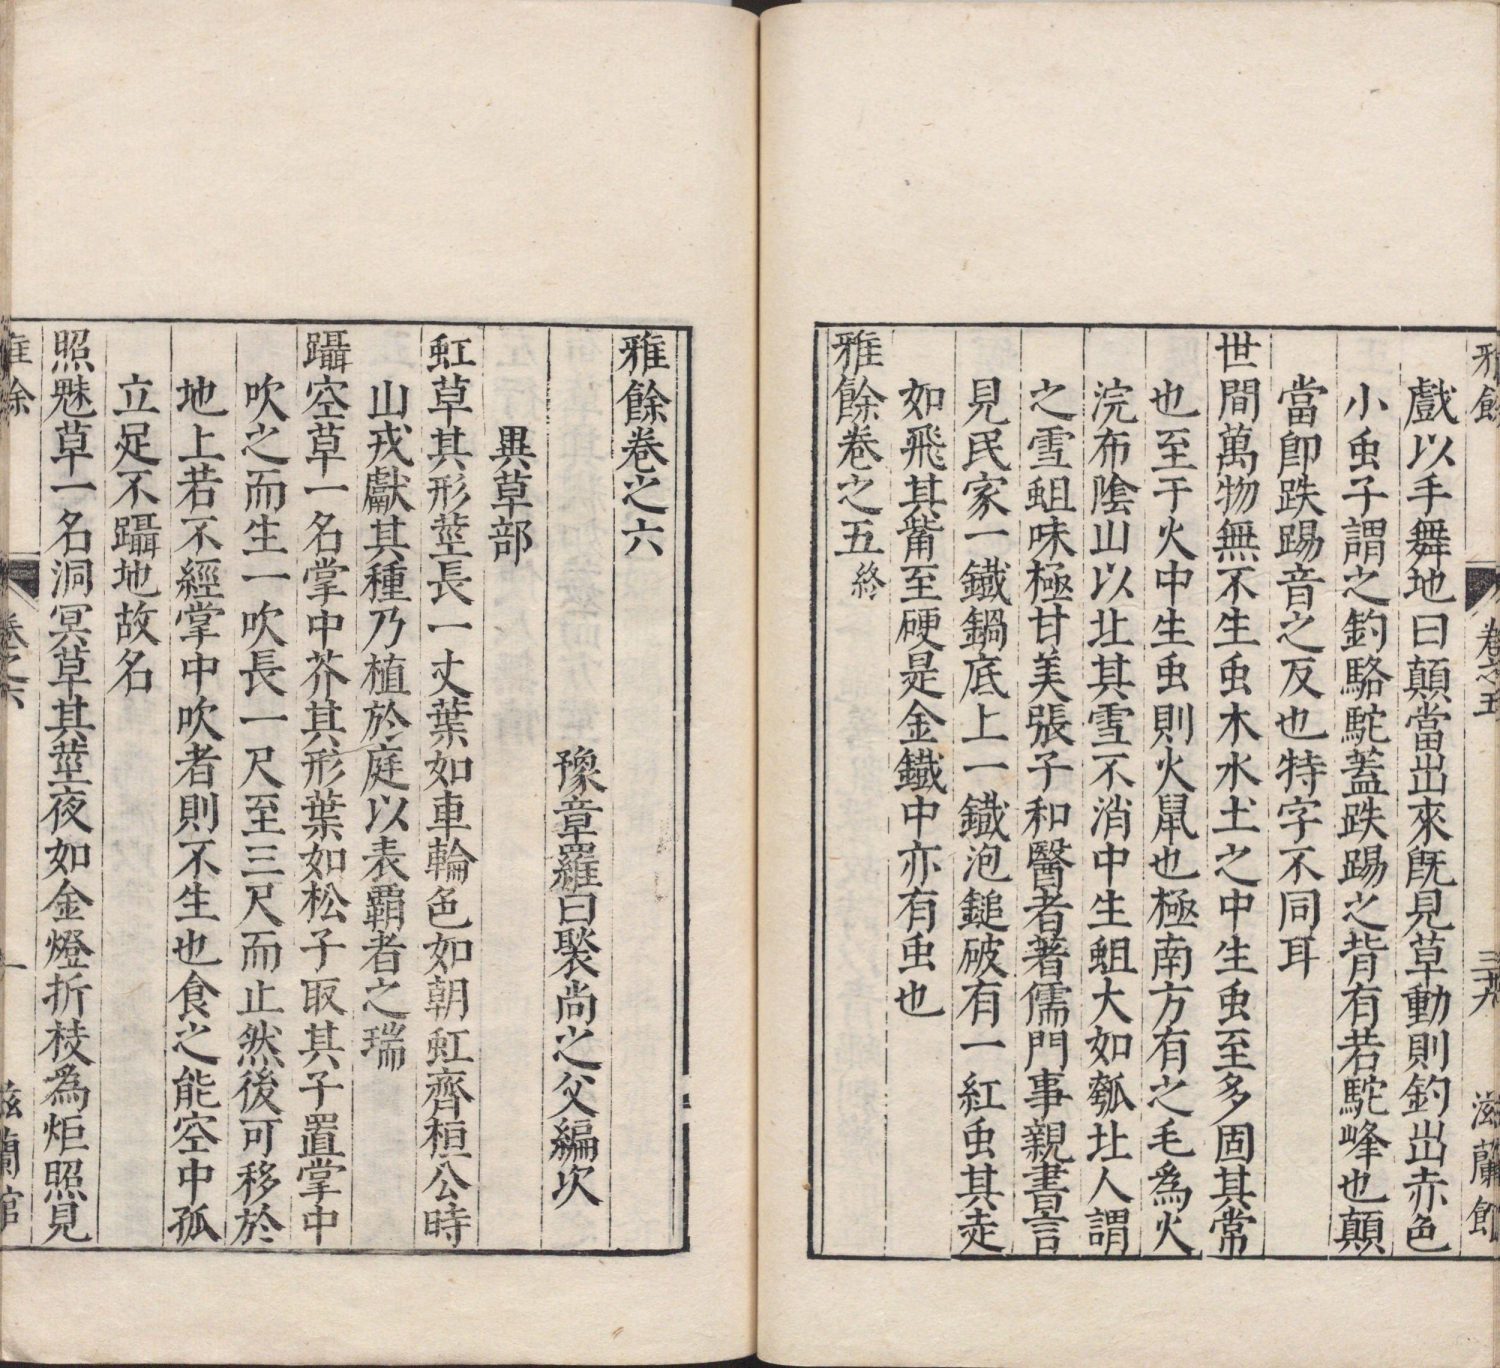 雅餘
卷之五
三十八
滋蘭館
戲以手舞地曰顛當出來旣見草動則釣出赤色
小虫子謂之釣駱駝蓋跌踢之背有若駝峰也顛
當卽跌踢音之反也特字不同耳
世間萬物無不生虫木水土之中生虫至多固其常
也至于火中生虫則火鼠也極南方有之毛爲火
浣布陰山以北其雪不消中生蛆大如瓠北人謂
之雪蛆味極甘美張子和醫者著儒門事親書言
見民家一鐵鍋底上一鐵泡鎚破有一紅虫其走
如飛其觜至硬是金鐵中亦有虫也
雅餘卷之五終
雅餘卷之六
豫章羅曰褧尚之父編次
異草部
虹草其形莖長一丈葉如車輪色如朝虹齊桓公時
山戎獻其種乃植於庭以表覇者之瑞
躡空草一名掌中芥其形葉如松子取其子置掌中
吹之而生一吹長一尺至三尺而止然後可移於
地上若不經掌中吹者則不生也食之能空中孤
立足不躡地故名
照魅草一名洞冥草其莖夜如金燈折枝為炬照見
雅餘
卷之六
一
滋蘭館